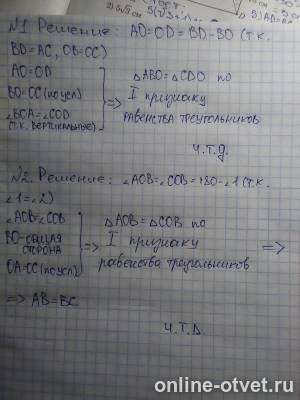 ответ:
2) 5√3 см 5(√3+1)...
№1 Решение: AO=OD=BD-BO (т.к.
BD=AC, OB=OC)
AO=OD
BO=OC (по усл)
∠BOA=∠COD
(т.к. вертикальные)
=> △ABO=△CDO по
I признаку
равенства треугольников
ч.т.д.
№2. Решение: ∠AOB=∠COB=180-∠1 (т.к.
∠1=∠2)
∠AOB=∠COB
BO-общая
сторона
OA=OC (по усл)
=> △AOB=△COB по
I признаку
равенства треугольников
=>
=> AB=BC
ч.т.д.
online-otvet.ru